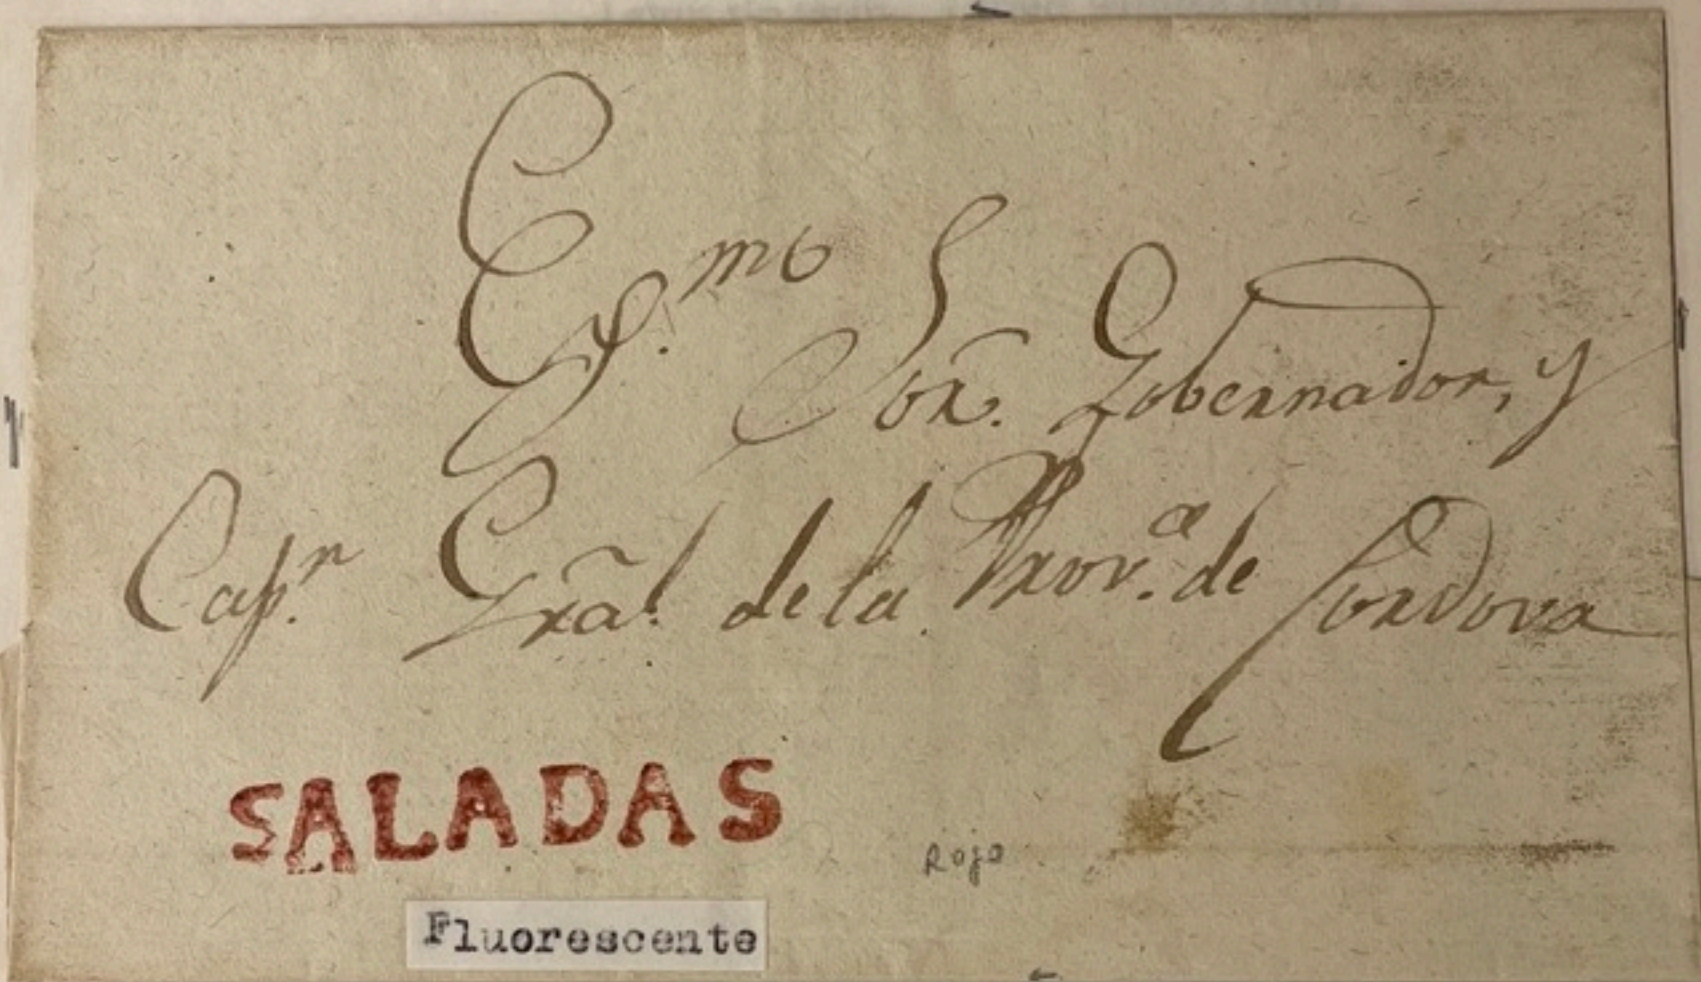 Exp.mo Sor. Gobernador, y
Capn. Gral. de la Prov.a de Cordova
SALADAS
Rojo
Fluorescente